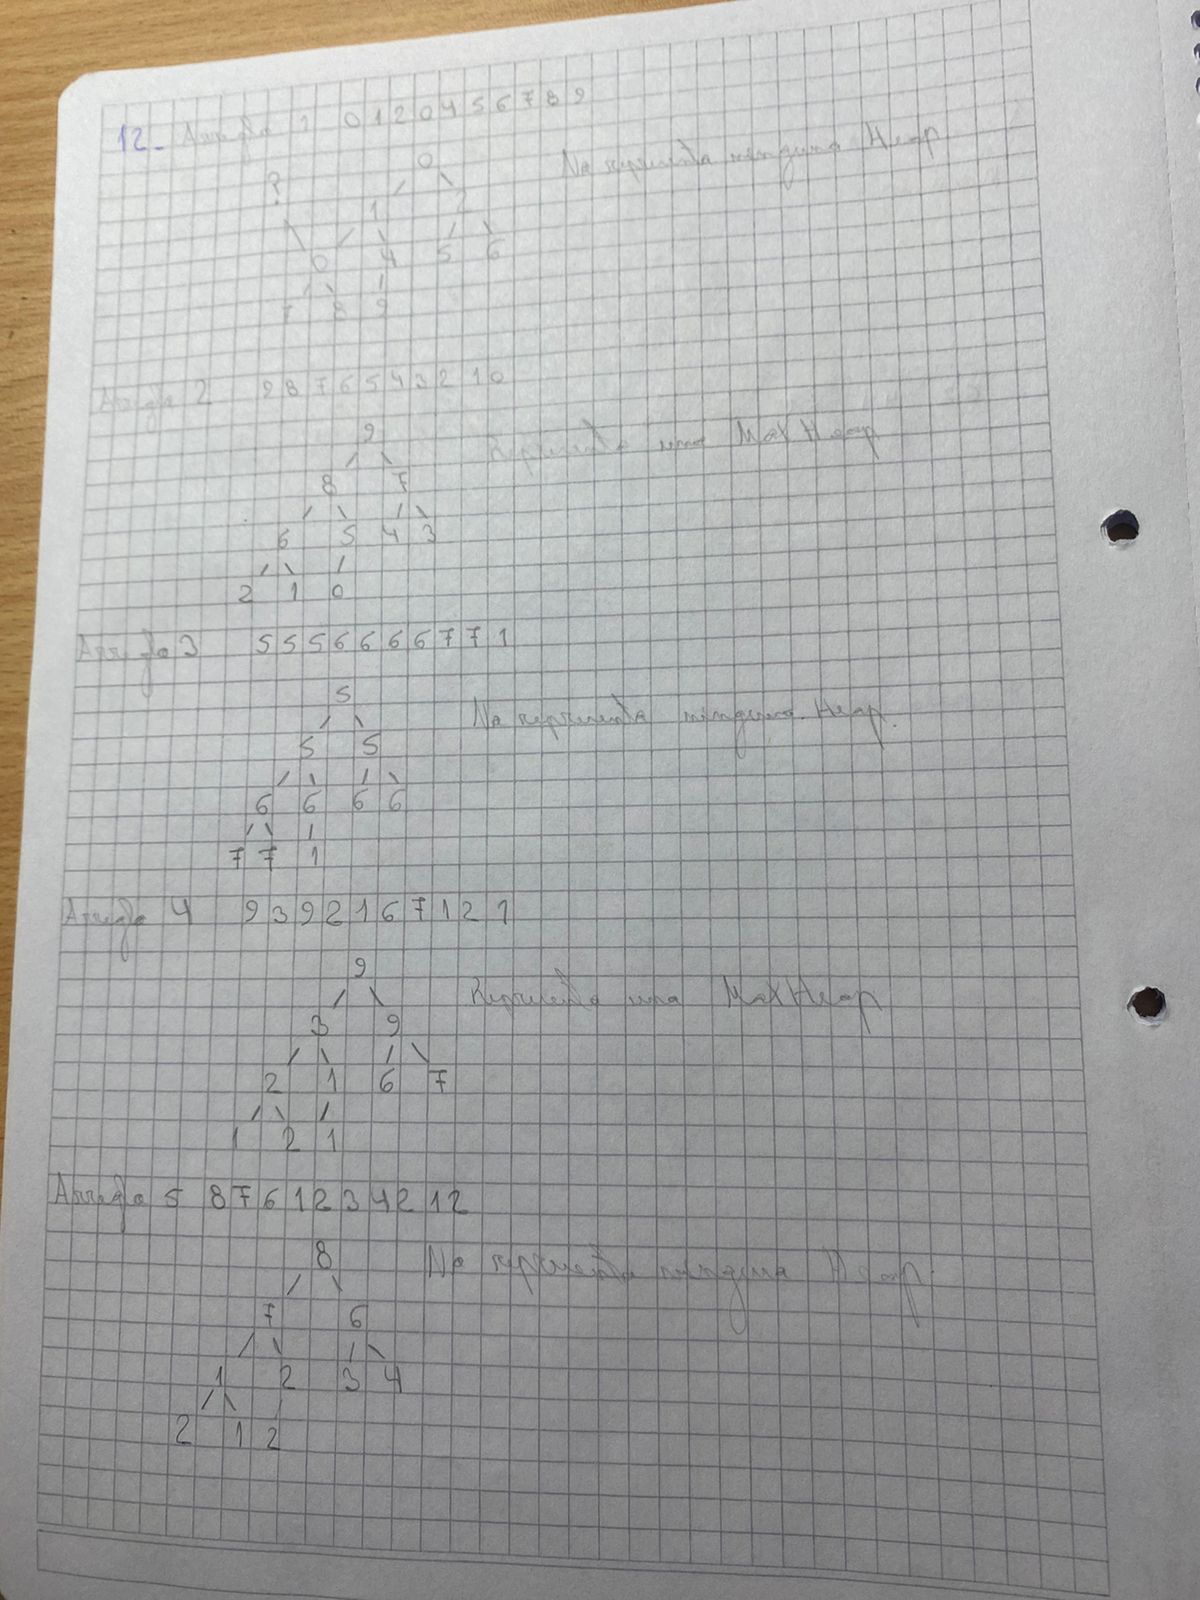 12- Arreglo 1 0 1 2 0 4 5 6 7 8 9
0 No representa ninguna Heap
?
1 2
0 4 5 6
7 8 9
Arreglo 2 9 8 7 6 5 4 3 2 1 0
9 Representa una MaxHeap
8 7
6 5 4 3
2 1 0
Arreglo 3 5 5 5 6 6 6 6 7 7 1
5 No representa ninguna Heap.
5 5
6 6 6 6
7 7 1
Arreglo 4 9 3 9 2 1 6 7 1 2 1
9 Representa una MaxHeap
3 9
2 1 6 7
1 2 1
Arreglo 5 8 7 6 1 2 3 4 2 1 2
8 No representa ninguna Heap.
7 6
1 2 3 4
2 1 2